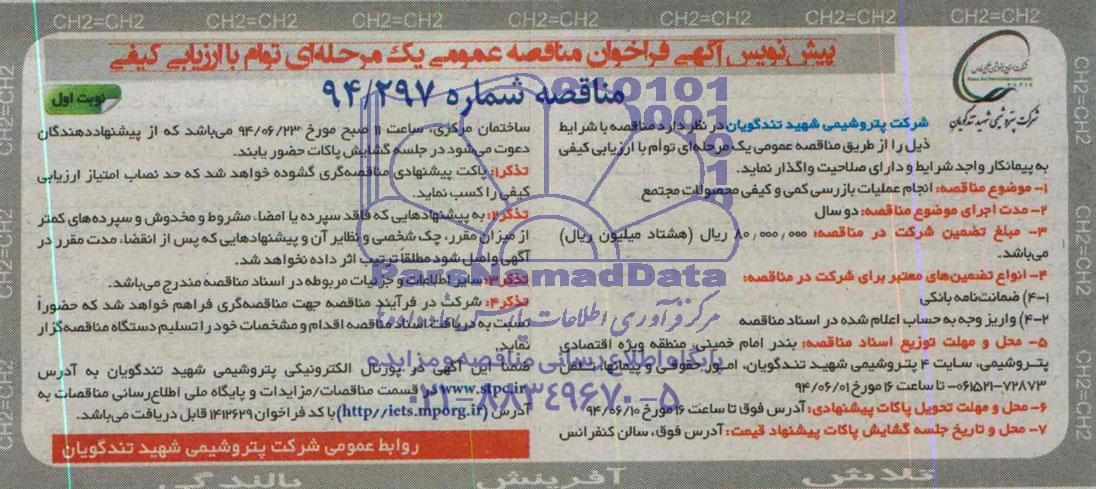 CH2=CH2 CH2=CH2 CH2=CH2 CH2=CH2 CH2=CH2 CH2=CH2 CH2=CH2
پیش‌نویس آگهی فراخوان مناقصه عمومی یک مرحله‌ای توام با ارزیابی کیفی
مناقصه شماره ۹۴/۲۹۷
نوبت اول
شرکت پتروشیمی شهید تندگویان
شرکت پتروشیمی شهید تندگویان در نظر دارد مناقصه با شرایط
ذیل را از طریق مناقصه عمومی یک مرحله‌ای توأم با ارزیابی کیفی
به پیمانکار واجد شرایط و دارای صلاحیت واگذار نماید.
۱- موضوع مناقصه: انجام عملیات بازرسی کمی و کیفی محصولات مجتمع
۲- مدت اجرای موضوع مناقصه: دو سال
۳- مبلغ تضمین شرکت در مناقصه: ۸۰,۰۰۰,۰۰۰ ریال (هشتاد میلیون ریال)
می‌باشد.
۴- انواع تضمین‌های معتبر برای شرکت در مناقصه:
۴-۱) ضمانت‌نامه بانکی
۴-۲) واریز وجه به حساب اعلام شده در اسناد مناقصه
۵- محل و مهلت توزیع اسناد مناقصه: بندر امام خمینی، منطقه ویژه اقتصادی
پتروشیمی، سایت ۴ پتروشیمی شهید تندگویان، امور حقوقی و پیمانها، تلفن
۰۶۱۵۲۱-۷۲۸۷۳ تا ساعت ۱۶ مورخ ۹۴/۰۶/۰۱
۶- محل و مهلت تحویل پاکات پیشنهادی: آدرس فوق تا ساعت ۱۶ مورخ ۹۴/۰۶/۱۰
۷- محل و تاریخ جلسه گشایش پاکات پیشنهاد قیمت: آدرس فوق، سالن کنفرانس
ساختمان مرکزی، ساعت ۱۱ صبح مورخ ۹۴/۰۶/۲۳ می‌باشد که از پیشنهاددهندگان
دعوت می‌شود در جلسه گشایش پاکات حضور یابند.
تذکر۱: پاکت پیشنهادی مناقصه‌گری گشوده خواهد شد که حد نصاب امتیاز ارزیابی
کیفی را کسب نماید.
تذکر۲: به پیشنهادهایی که فاقد سپرده یا امضا، مشروط و مخدوش و سپرده‌های کمتر
از میزان مقرر، چک شخصی و نظایر آن و پیشنهادهایی که پس از انقضاء مدت مقرر در
آگهی واصل شود مطلقاً ترتیب اثر داده نخواهد شد.
تذکر۳: سایر اطلاعات و جزئیات مربوطه در اسناد مناقصه مندرج می‌باشد.
تذکر۴: شرکت در فرآیند مناقصه جهت مناقصه‌گری فراهم خواهد شد که حضوراً
نسبت به دریافت اسناد مناقصه اقدام و مشخصات خود را تسلیم دستگاه مناقصه‌گزار
نماید.
ضمناً این آگهی در پورتال الکترونیکی پتروشیمی شهید تندگویان به آدرس
www.stpc.ir در قسمت مناقصات/مزایدات و پایگاه ملی اطلاع‌رسانی مناقصات به
آدرس (http//iets.mporg.ir) با کد فراخوان ۱۴۱۲۶۲۹ قابل دریافت می‌باشد.
روابط عمومی شرکت پتروشیمی شهید تندگویان
ParsNamadData
مرکز فرآوری اطلاعات پارس نماد داده‌ها
پایگاه اطلاع رسانی مناقصه و مزایده
۰۲۱-۸۸۳۴۹۶۷۰-۵
تلاش آفرینش بالندگی